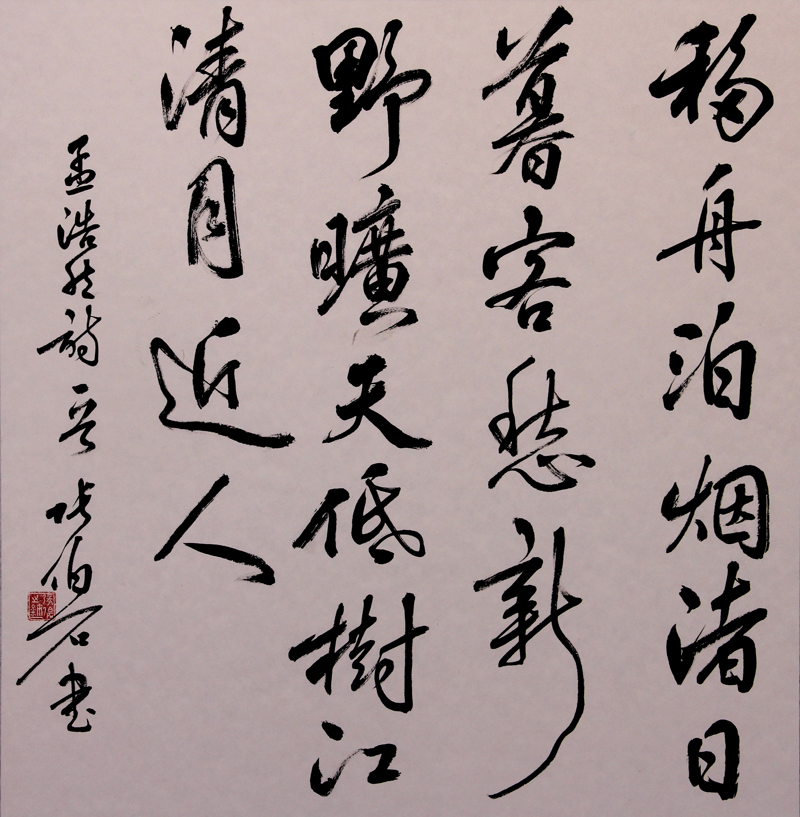 移舟泊烟渚日
暮客愁新
野曠天低樹江
清月近人
孟浩然詩一首 張伯石書